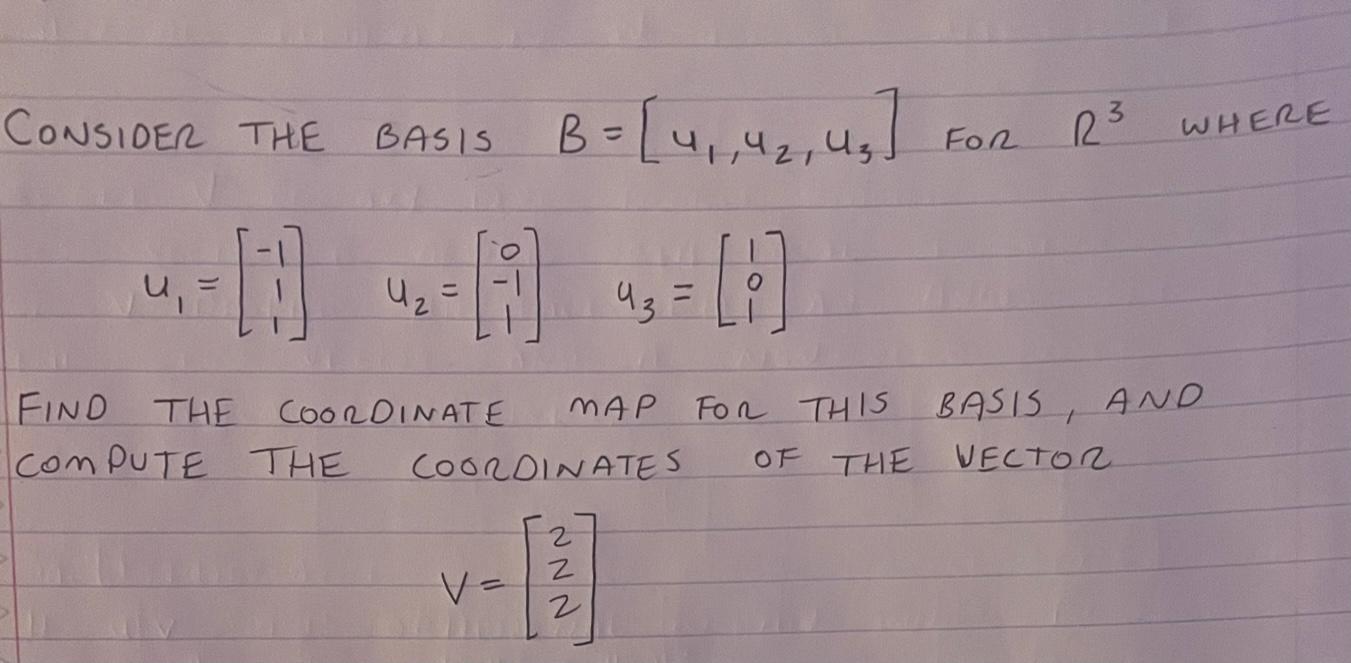 CONSIDER THE BASIS B = [u₁, u₂, u₃] FOR R³ WHERE
u₁ = [-1 1 1] u₂ = [0 -1 1] u₃ = [1 0 1]
FIND THE COORDINATE MAP FOR THIS BASIS, AND
COMPUTE THE COORDINATES OF THE VECTOR
V = [2 2 2]